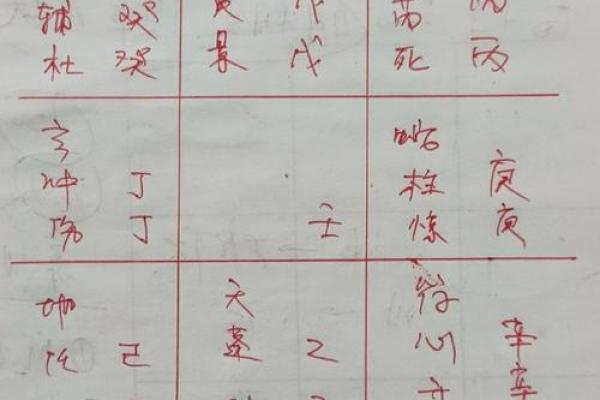 辅 癸
杜 癸
景 戊
死 丙
玄
冲 丁
伤 丁
壬
蛇
柱 庚
惊 庚
地
任 己
天
蓬 乙
符
心 辛
辛